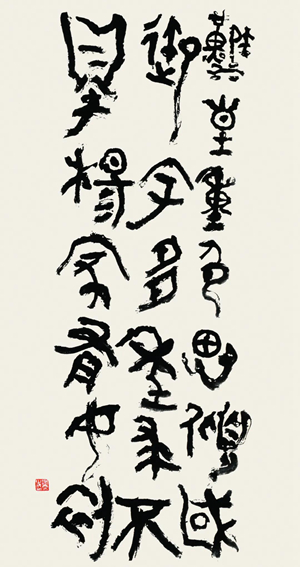 漢皇重色思傾國
御宇多年求不
得楊家有女初